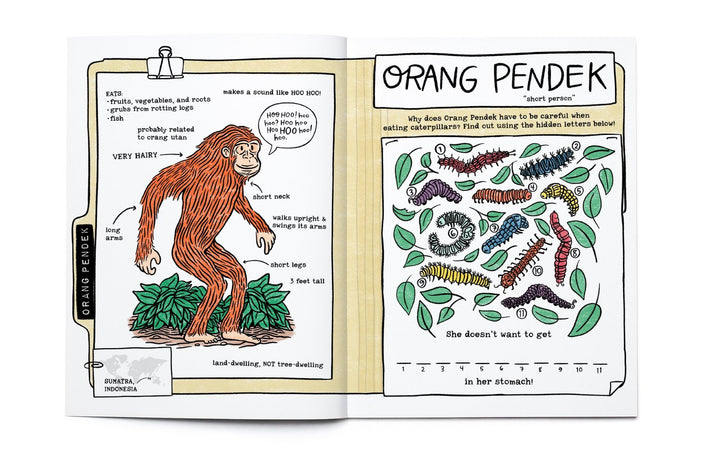 EATS:
· fruits, vegetables, and roots
· grubs from rotting logs
· fish
makes a sound like HOO HOO!
HOO HOO! hoo
hoo? Hoo hoo
Hoo HOO hoo!
hoo.
probably related
to orang utan
VERY HAIRY
short neck
long
arms
walks upright &
swings its arms
short legs
3 feet tall
ORANG PENDEK
land-dwelling, NOT tree-dwelling
SUMATRA,
INDONESIA
ORANG PENDEK
"short person"
Why does Orang Pendek have to be careful when
eating caterpillars? Find out using the hidden letters below!
1
2
3
4
5
6
7
8
9
10
11
She doesn't want to get
1 2 3 4 5 6 7 8 9 10 11
in her stomach!